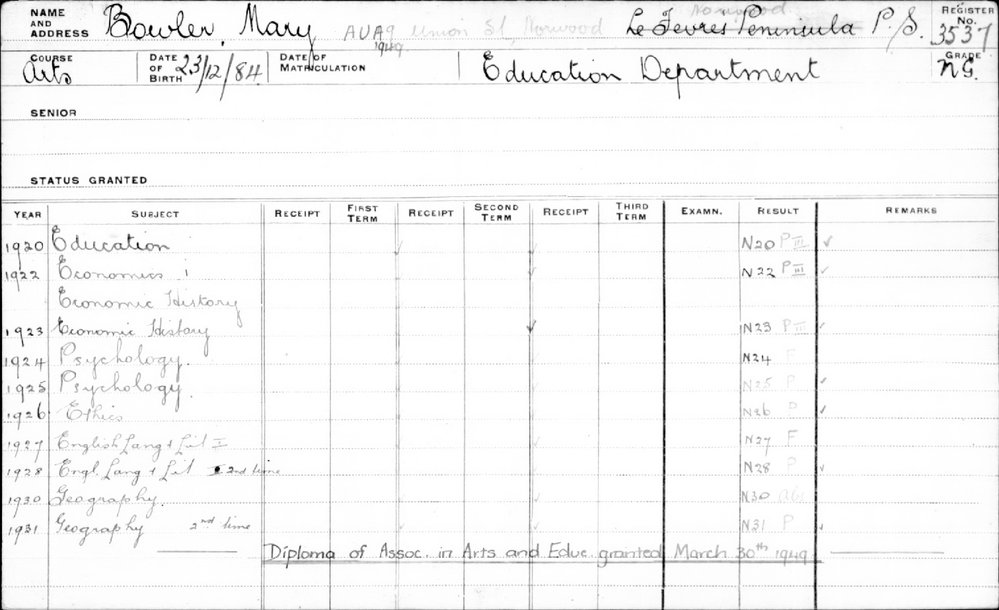 NAME AND ADDRESS Bowler, Mary AUA9 1949 Union St, Norwood Norwood Le Fevres Peninsula P.S. REGISTER No. 3537
COURSE Arts DATE OF BIRTH 23/12/84 DATE OF MATRICULATION Education Department GRADE N.G.
SENIOR
STATUS GRANTED
YEAR SUBJECT RECEIPT FIRST TERM RECEIPT SECOND TERM RECEIPT THIRD TERM EXAMN. RESULT REMARKS
1920 Education ✓ ✓ N20 P III ✓
1922 Economics i ✓ N22 P III ✓
Economic History
1923 Economic History ✓ N23 P III ✓
1924 Psychology. N24 F
1925 Psychology. N25 P ✓
1926 Ethics N26 P ✓
1927 English Lang + Lit I ✓ N27 F
1928 Engl. Lang + Lit I 2nd time N28 P ✓
1930 Geography. ✓ N30 abs
1931 Geography 2nd time ✓ ✓ N31 P ✓
Diploma of Assoc. in Arts and Educ. granted March 30th 1949